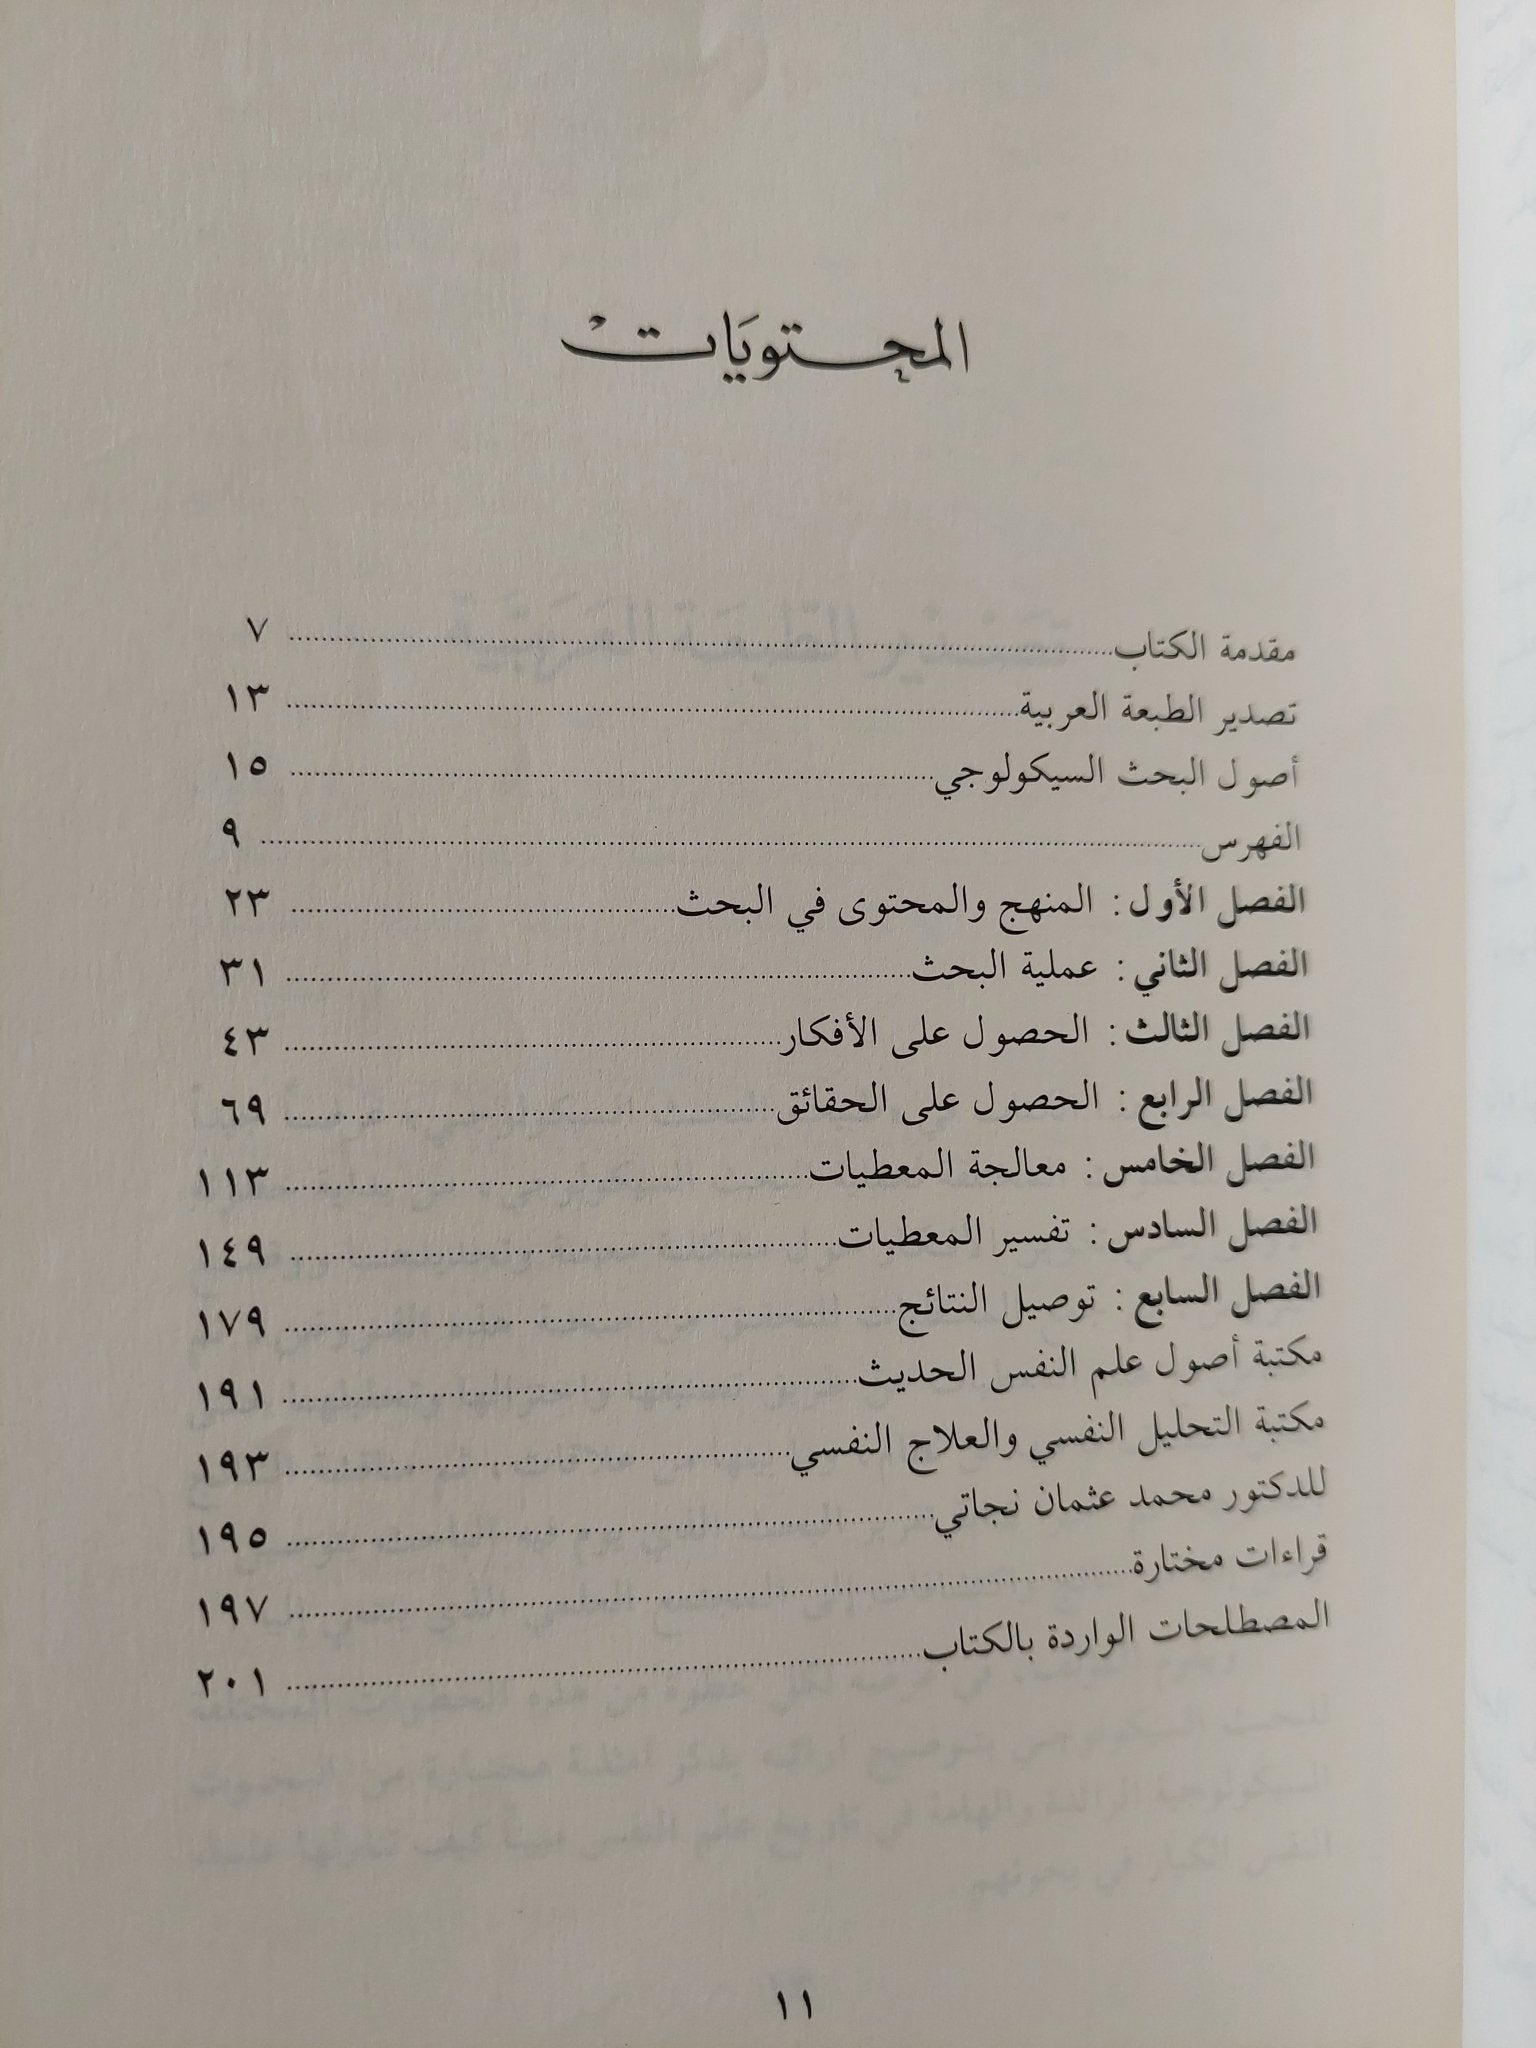 المحتويَات
مقدمة الكتاب ........ ٧
تصدير الطبعة العربية ........ ١٣
أصول البحث السيكولوجي ........ ١٥
الفهرس ........ ٩
الفصل الأول : المنهج والمحتوى في البحث ........ ٢٣
الفصل الثاني : عملية البحث ........ ٣١
الفصل الثالث : الحصول على الأفكار ........ ٤٣
الفصل الرابع : الحصول على الحقائق ........ ٦٩
الفصل الخامس : معالجة المعطيات ........ ١١٣
الفصل السادس : تفسير المعطيات ........ ١٤٩
الفصل السابع : توصيل النتائج ........ ١٧٩
مكتبة أصول علم النفس الحديث ........ ١٩١
مكتبة التحليل النفسي والعلاج النفسي ........ ١٩٣
للدكتور محمد عثمان نجاتي ........ ١٩٥
قراءات مختارة ........ ١٩٧
المصطلحات الواردة بالكتاب ........ ٢٠١
١١